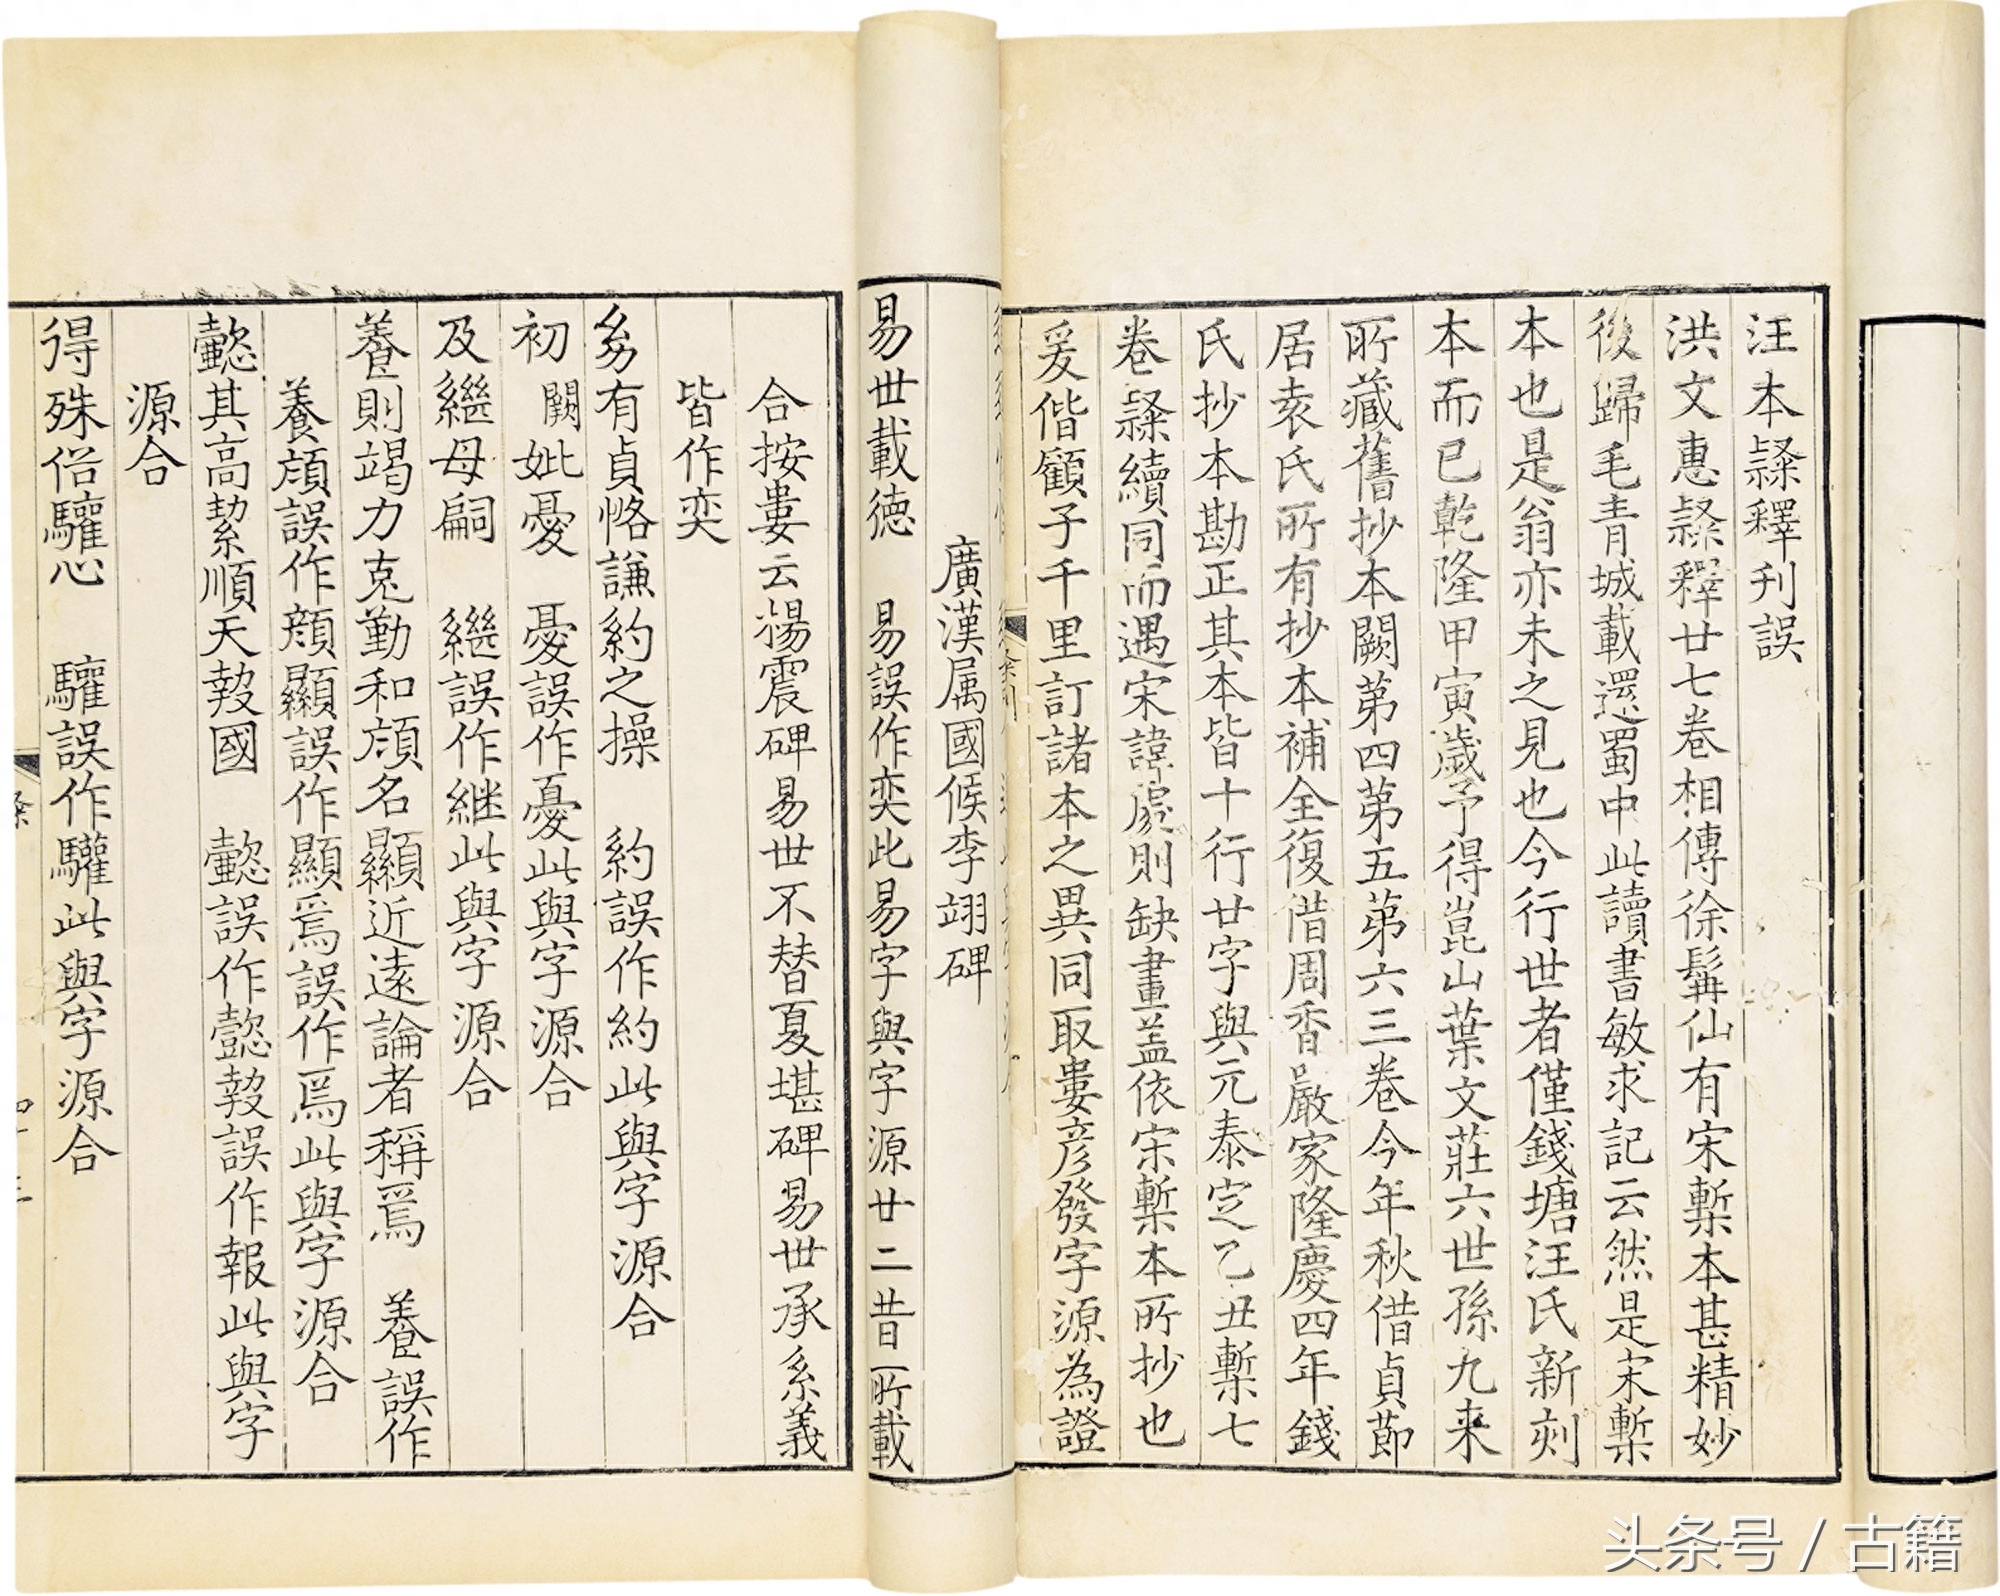 汪本隸釋刊誤
洪文惠隸釋廿七卷相傳徐髯仙有宋槧本甚精妙
後歸毛青城載還蜀中此讀書敏求記云然是宋槧
本也是翁亦未之見也今行世者僅錢塘汪氏新刻
本而已乾隆甲寅歲予得崑山葉文莊六世孫九来
所藏舊抄本闕第四第五第六三卷今年秋借貞節
居袁氏所有抄本補全復借周香嚴家隆慶四年錢
氏抄本勘正其本皆十行廿字與元泰定乙丑槧七
卷隸續同而遇宋諱處則缺畫盖依宋槧本所抄也
爰偕顧子千里訂諸本之異同取婁彦發字源為證
廣漢属國候李翊碑
易世載德 易誤作奕此易字與字源廿二昔所載
合按婁云楊震碑易世不替夏堪碑易世承系義
皆作奕
㓜有貞恪謙約之操 約誤作約此與字源合
初闕妣憂 憂誤作憂此與字源合
及繼母嗣 繼誤作継此與字源合
養則竭力克勤和顔名顯近遠論者稱焉 養誤作
養顔誤作顔顯誤作顯焉誤作焉此與字源合
懿其高絜順天報國 懿誤作懿報誤作報此與字
源合
得殊俗驩心 驩誤作驩此與字源合
头条号 / 古籍